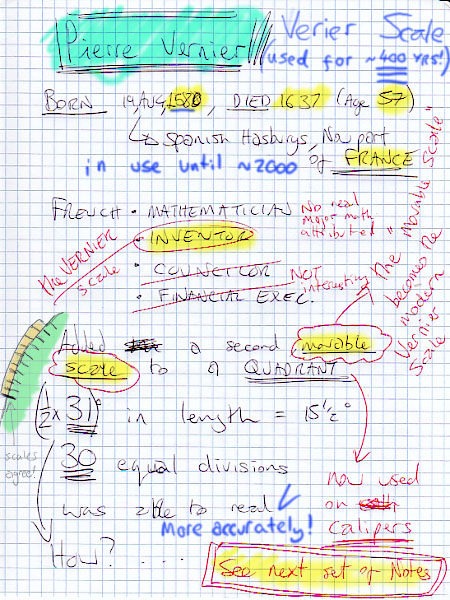 Pierre Vernier
Verier Scale
(used for ~400 YRS!)
BORN 19, AUG, 1580, DIED 1637 (Age 57)
↳ Spanish Hasburgs, Now part
of FRANCE
in use until ~2000
FRENCH • MATHEMATICIAN
No real
Major math
attributed
• INVENTOR
the VERNIER
scale
• COUNCILOR
• FINANCIAL EXEC.
NOT
interesting
The "movable scale"
becomes the
modern
Vernier
Scale
Added a second movable
scale to a QUADRANT
(1/2 x 31)° in length = 15 1/2°
30 equal divisions
scales
agree!
was able to read
More accurately!
How? . . . .
Now used
on
Calipers
See next set of Notes